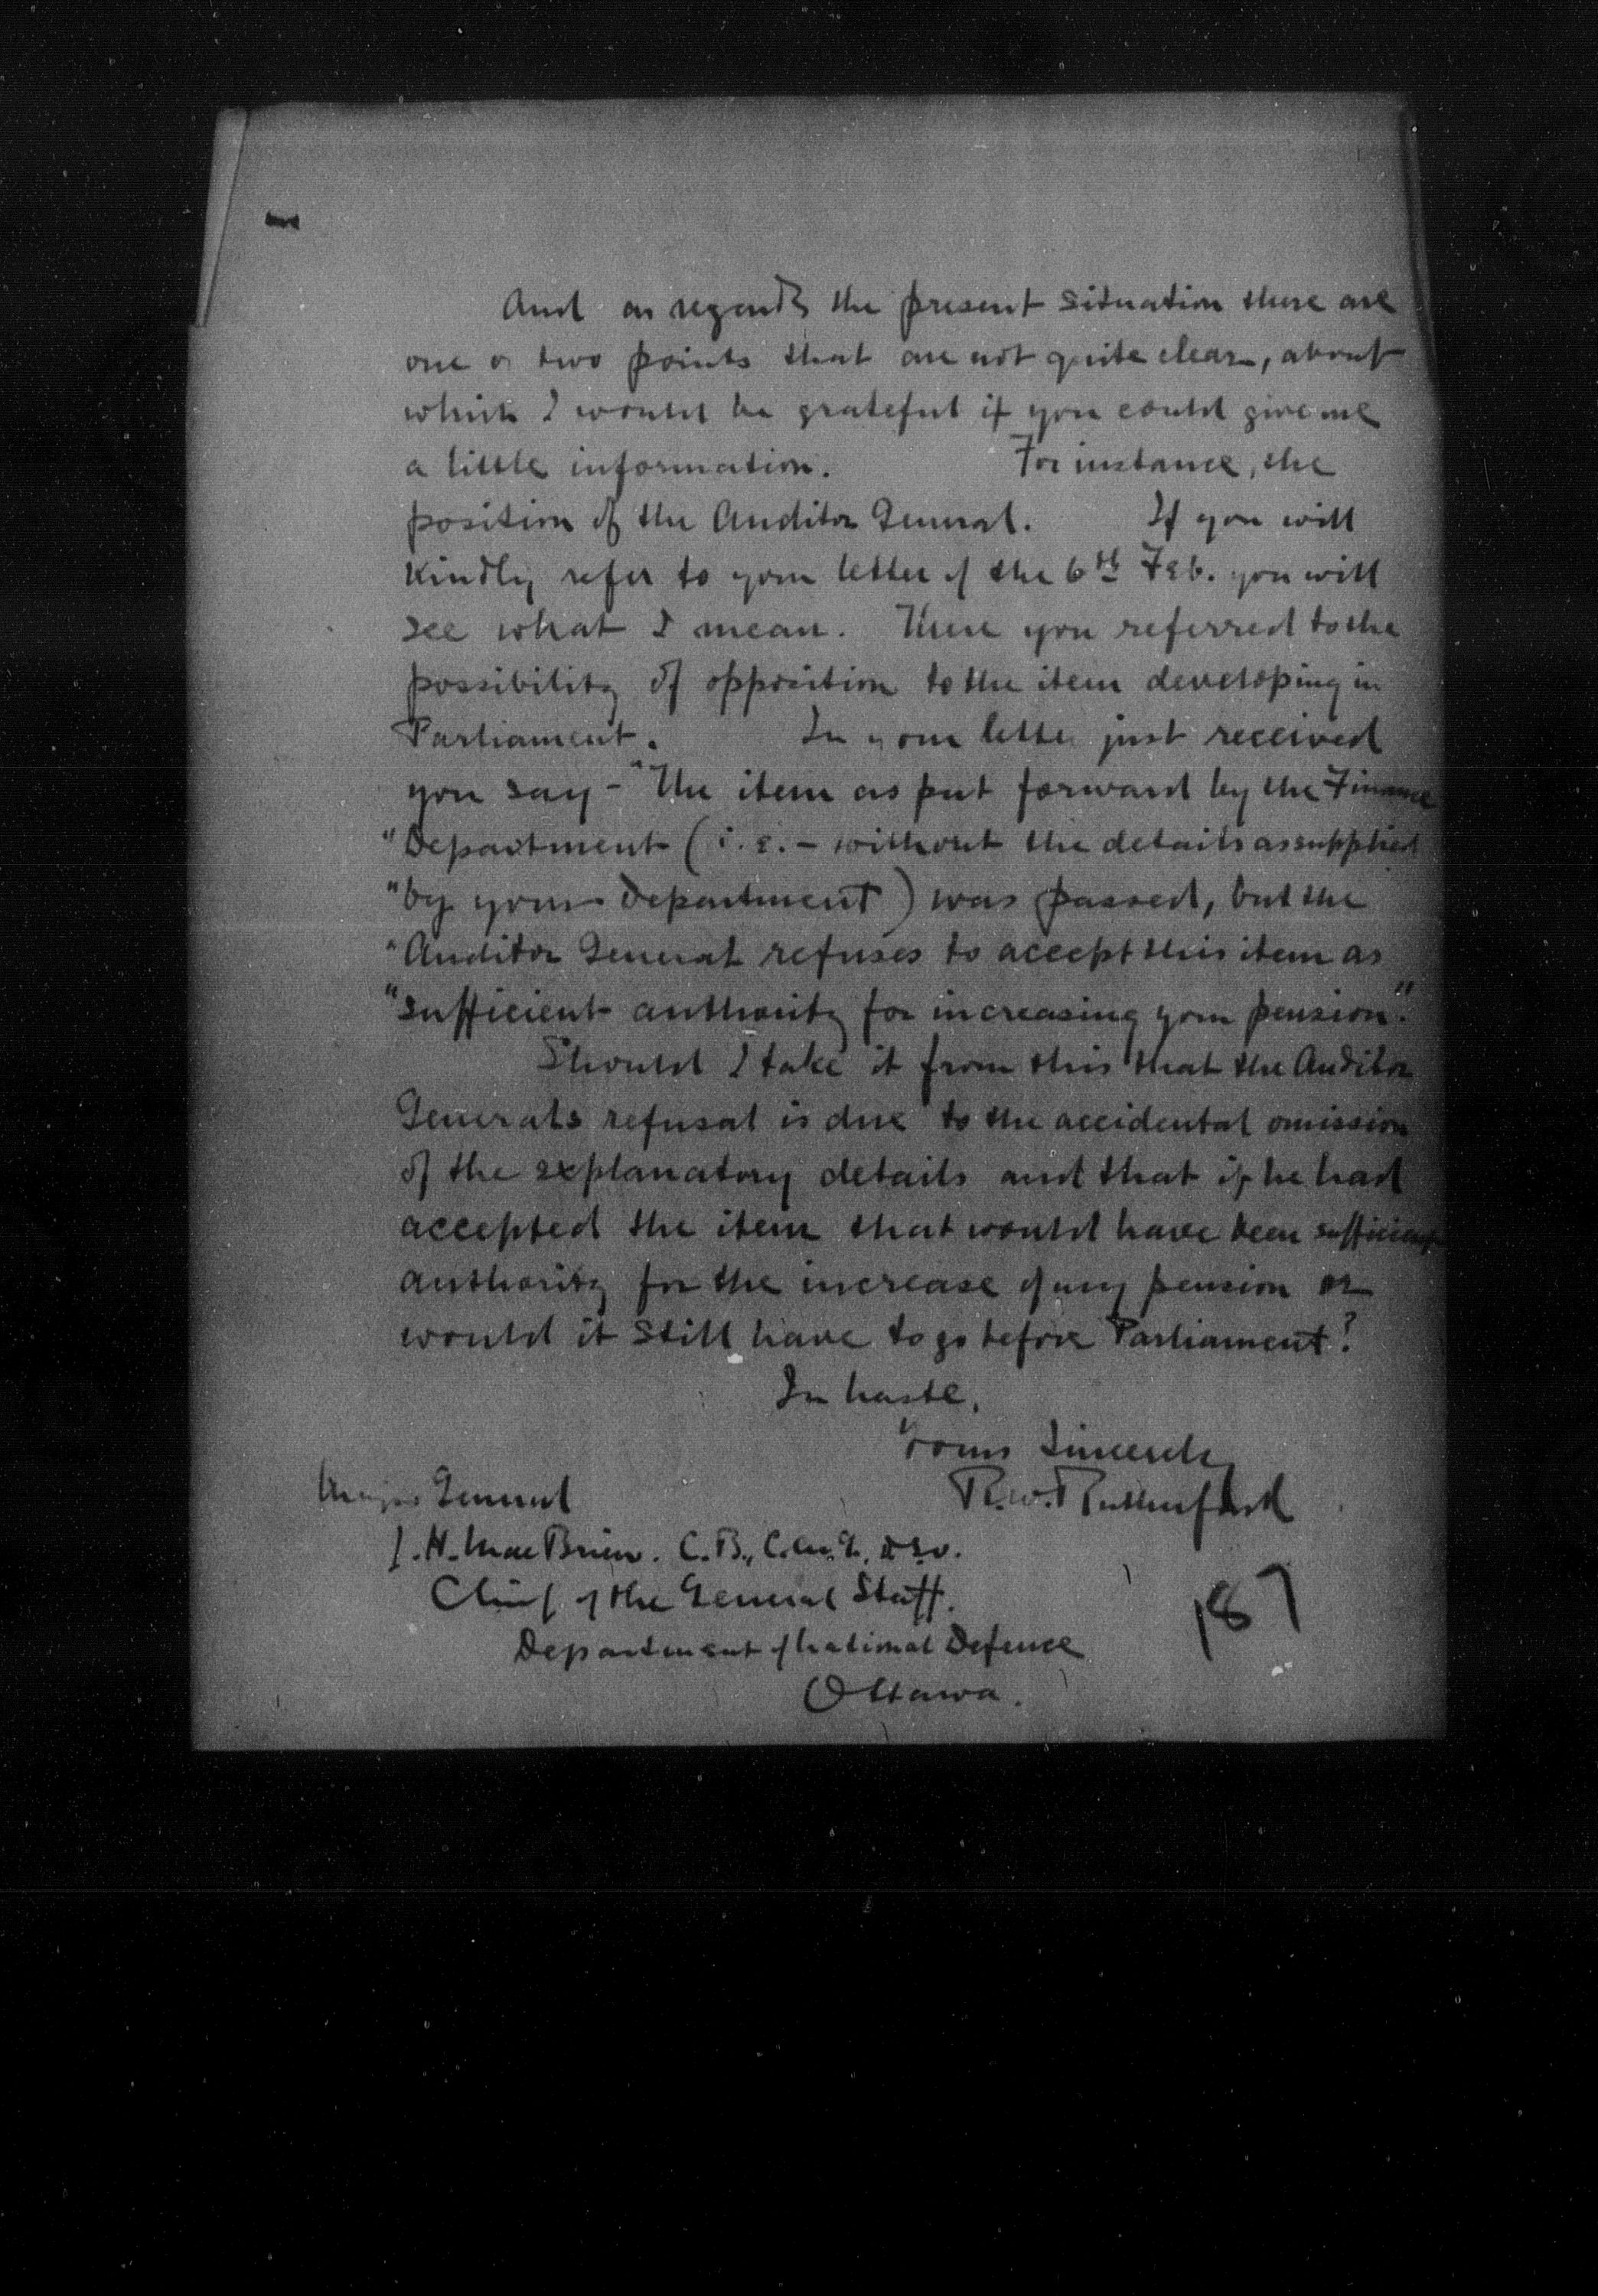 And as regards the present situation there are
one or two points that are not quite clear, about
which I would be grateful if you could give me
a little information. For instance, the
position of the Auditor General. If you will
Kindly refer to your letter of the 6th Feb. you will
see what I mean. There you referred to the
possibility of opposition to the item developing in
Parliament. In your letter just received
you say - "The item as put forward by the Finance
"Department (i.e. - without the details as supplied
"by your Department) was passed, but the
"Auditor General refuses to accept this item as
"sufficient authority for increasing your pension."
Should I take it from this that the Auditor
Generals refusal is due to the accidental omission
of the explanatory details and that if he had
accepted the item that would have been sufficient
authority for the increase of my pension or
would it still have to go before Parliament?
In haste,
Yours Sincerely
R.W. Rutherford
Major General
J. H. MacBrien. C.B., C.M.G., D.S.O.
Chief of the General Staff.
Department of National Defence
Ottawa.
187